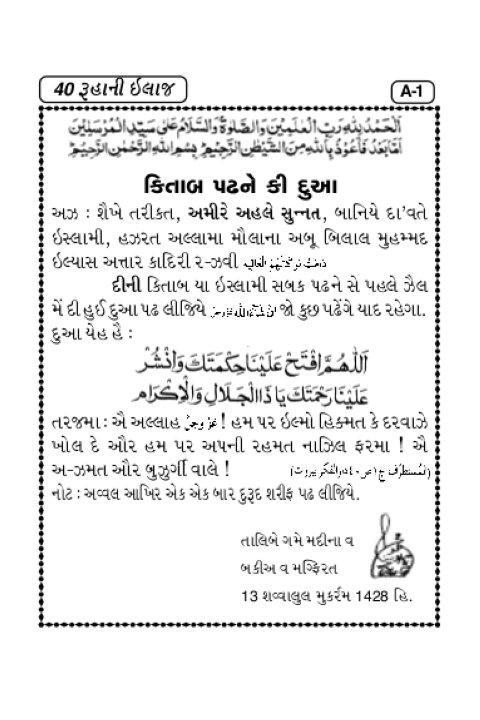 40 રૂહાની ઇલાજ
A-1
اَلْحَمْدُ لِلّٰهِ رَبِّ الْعٰلَمِيْنَ وَالصَّلٰوةُ وَالسَّلَامُ عَلٰى سَيِّدِ الْمُرْسَلِيْنَ
اَمَّا بَعْدُ فَاَعُوْذُ بِاللّٰهِ مِنَ الشَّيْطٰنِ الرَّجِيْمِ بِسْمِ اللّٰهِ الرَّحْمٰنِ الرَّحِيْمِ
કિતાબ પઢને કી દુઆ
અઝ : શૈખે તરીકત, અમીરે અહલે સુન્નત, બાનિયે દા'વતે
ઇસ્લામી, હઝરત અલ્લામા મૌલાના અબૂ બિલાલ મુહમ્મદ
ઇલ્યાસ અત્તાર કાદિરી ર-ઝવી دَامَتْ بَرَكَاتُهُمُ الْعَالِيَه
દીની કિતાબ યા ઇસ્લામી સબક પઢને સે પહલે ઝૈલ
મેં દી હુઈ દુઆ પઢ લીજિયે اِنْ شَآءَ اللّٰه عَزَّوَجَلَّ જો કુછ પઢેંગે યાદ રહેગા.
દુઆ યેહ હૈ :
اَللّٰهُمَّ افْتَحْ عَلَيْنَا حِكْمَتَكَ وَانْشُرْ
عَلَيْنَا رَحْمَتَكَ يَا ذَا الْجَلَالِ وَالْاِكْرَام
તરજમા : ઐ અલ્લાહ عَزَّوَجَلَّ ! હમ પર ઇલ્મો હિકમત કે દરવાઝે
ખોલ દે ઔર હમ પર અપની રહમત નાઝિલ ફરમા ! ઐ
અ-ઝમત ઔર બુઝુર્ગી વાલે ! (المُستطرَف ج ١ ص ٤٠ دارالفكر بيروت)
નોટ : અવ્વલ આખિર એક એક બાર દુરૂદ શરીફ પઢ લીજિયે.
તાલિબે ગમે મદીના વ
બકીઅ વ મગ્ફિરત
13 શવ્વાલુલ મુકર્રમ 1428 હિ.